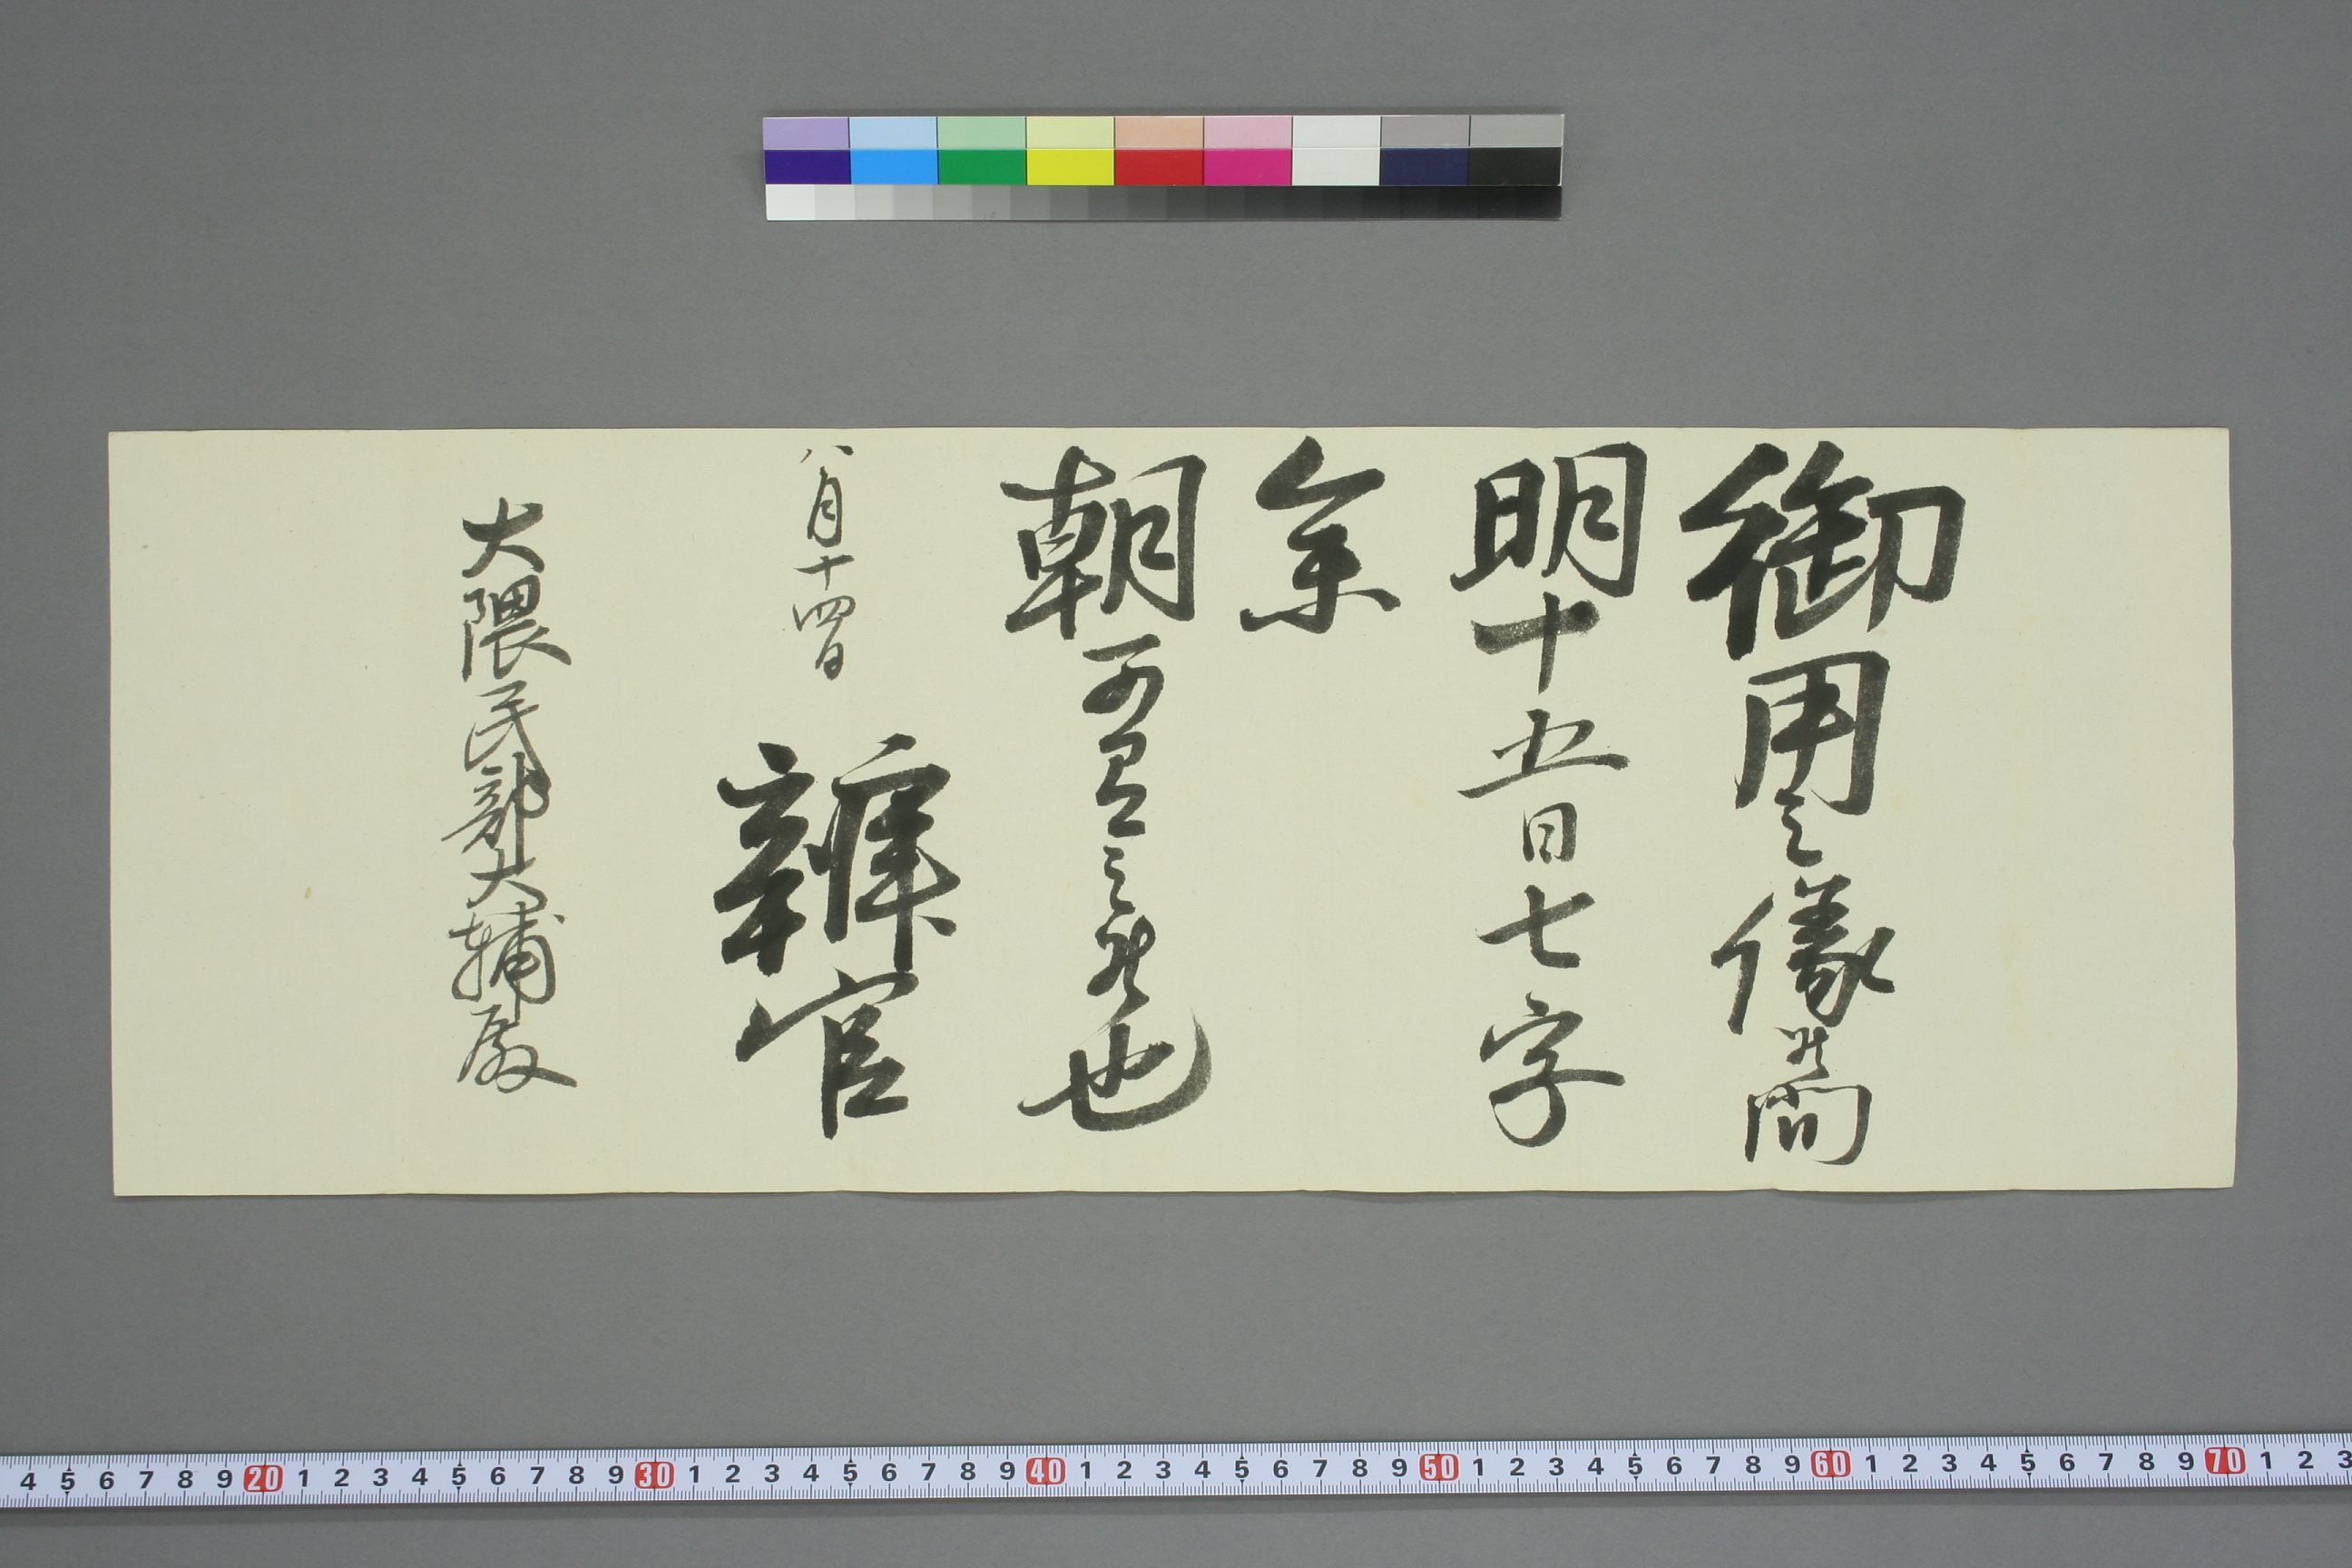 御用之儀候間
明十五日七字
参
朝可有之候也
八月十四日
辨官
大隈民部大輔殿
4 5 6 7 8 9 20 1 2 3 4 5 6 7 8 9 30 1 2 3 4 5 6 7 8 9 40 1 2 3 4 5 6 7 8 9 50 1 2 3 4 5 6 7 8 9 60 1 2 3 4 5 6 7 8 9 70 1 2 3